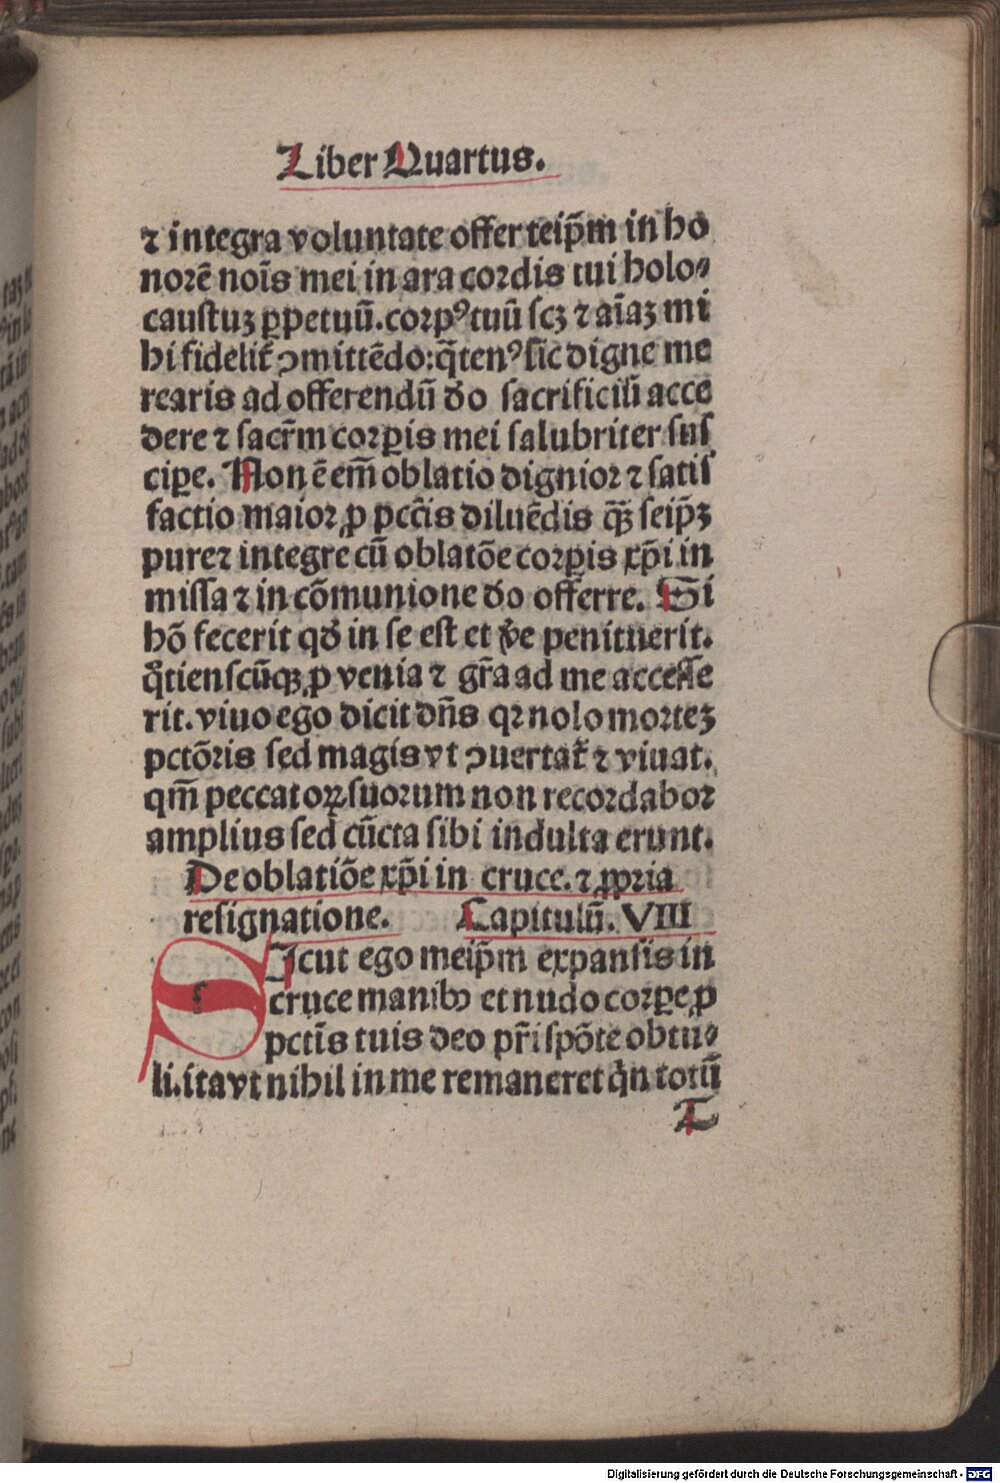 Liber Quartus.
⁊ integra voluntate offer teip̄m in ho
norē noīs mei in ara cordis tui holo⸗
caustuꝫ ꝑpetuū. corpꝰ tuū scꝫ ⁊ aīaꝫ mi
hi fidelit̄ ꝯmittēdo: q̄tenꝰ sic digne me
rearis ad offerendū do sacrificiū acce
dere ⁊ sacr̄m corꝑis mei salubriter sus
cipe. Non ē em̄ oblatio dignior ⁊ satis
factio maior ꝓ pctīs diluēdis q̄ꝫ seip̄ꝫ
pure⁊ integre cū oblatōe corꝑis xp̄i in
missa ⁊ in cōmunione do offerre. Si
hō fecerit qd̄ in se est et v̄e penituerit.
q̊tienscūqꝫ ꝓ venia ⁊ gr̄a ad me accesse
rit. viuo ego dicit dn̄s qꝛ nolo morteꝫ
pctōris sed magis vt ꝯuertat̄ ⁊ viuat.
qm̄ peccatoꝝ suorum non recordabor
amplius sed cūcta sibi indulta erunt.
De oblatiōe xp̄i in cruce. ⁊ ꝓpria
resignatione. Capitulū. VIII
SIcut ego meip̄m expansis in
cruce manibꝰ et nudo corꝑe ꝓ
pctīs tuis deo pr̄i spōte obtu⸗
li. ita vt nihil in me remaneret qn̄ totū
T
Digitalisierung gefördert durch die Deutsche Forschungsgemeinschaft - DFG